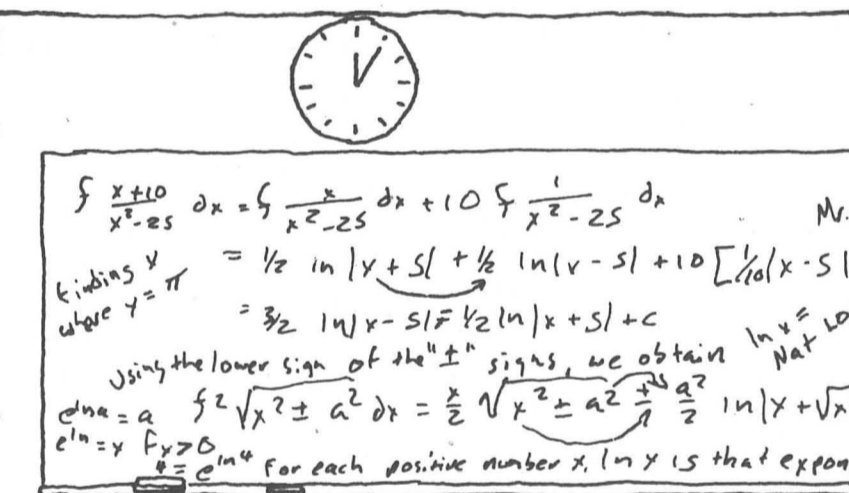 ∫ x+10/x²-25 dx = ∫ x/x²-25 dx + 10 ∫ 1/x²-25 dx
Mr.
finding x
where y = π
= 1/2 ln |x + 5| + 1/2 ln |x - 5| + 10 [1/10 |x - 5|
= 3/2 ln |x - 5| = 1/2 ln |x + 5| + c
ln x =
Nat LO
Using the lower sign of the "±" signs, we obtain
elna = a
∫2 √x² ± a² dx = x/2 √x² ± a² ± a²/2 ln |x + √x
eln = x fx>0
4 = eln4 For each positive number x, ln x is that expon